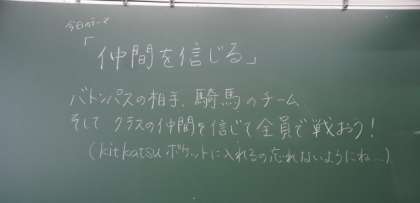 今日のテーマ
「仲間を信じる」
バトンパスの相手、騎馬のチーム、
そして クラスの仲間を信じて全員で戦おう!
(kitkatsu ポケットに入れるの忘れないようにね…)